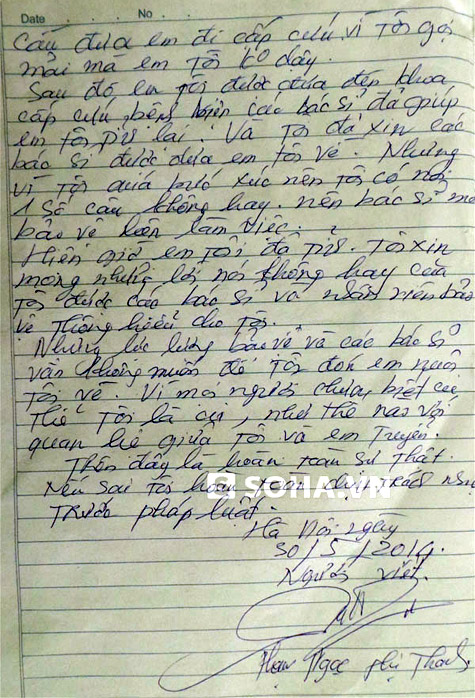 Date No
cấu đưa em đi cấp cứu vì tôi gọi
mãi mà em tôi ko dậy.
Sau đó em tôi được đưa đến khoa
cấp cứu, bệnh viện các bác sĩ đã giúp
em tôi tỉnh lại. Và tôi đã xin các
bác sĩ được đưa em tôi về. Nhưng
vì tôi quá bức xúc nên tôi có nói
1 số câu không hay. nên bác sĩ mời
bảo vệ lên làm việc.
Hiện giờ em tôi đã tỉnh. Tôi xin
mong những lời nói không hay của
tôi được các bác sĩ và nhân viên bảo
vệ thông hiểu cho tôi.
Nhưng lực lượng bảo vệ và các bác sĩ
vẫn không muốn để tôi đón em nuôi
tôi về. Vì mọi người chưa biết cụ
thể tôi là ai, như thế nào với
quan hệ giữa tôi và em Truyền.
Trên đây là hoàn toàn sự thật.
Nếu sai tôi hoàn toàn chịu trách nhiệm
trước pháp luật.
SOHA.VN
Hà Nội ngày
30/5/2014.
Người viết.
Phạm Ngọc Thanh